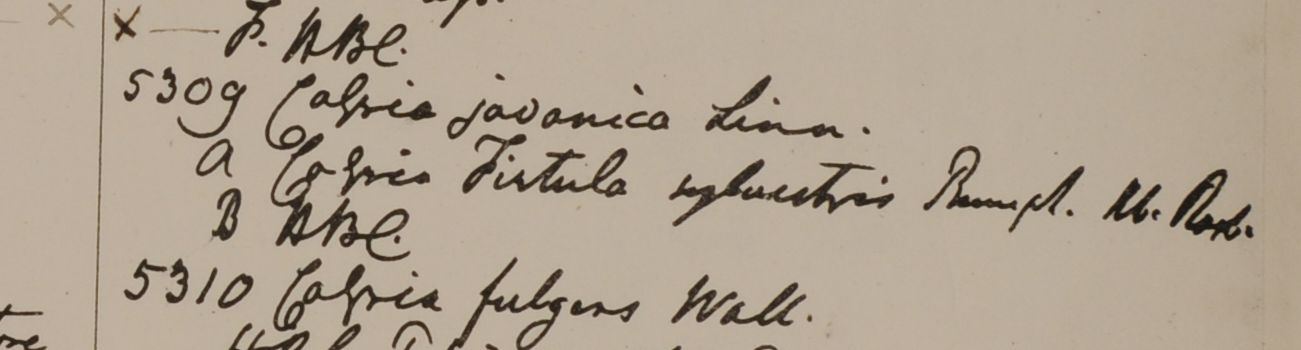 × × — F. HBC.
5309 Caſsia javanica Linn.
a Caſsia Fistula sylvestris Rumph. Hb. Roxb.
B HBC.
5310 Caſsia fulgens Wall.